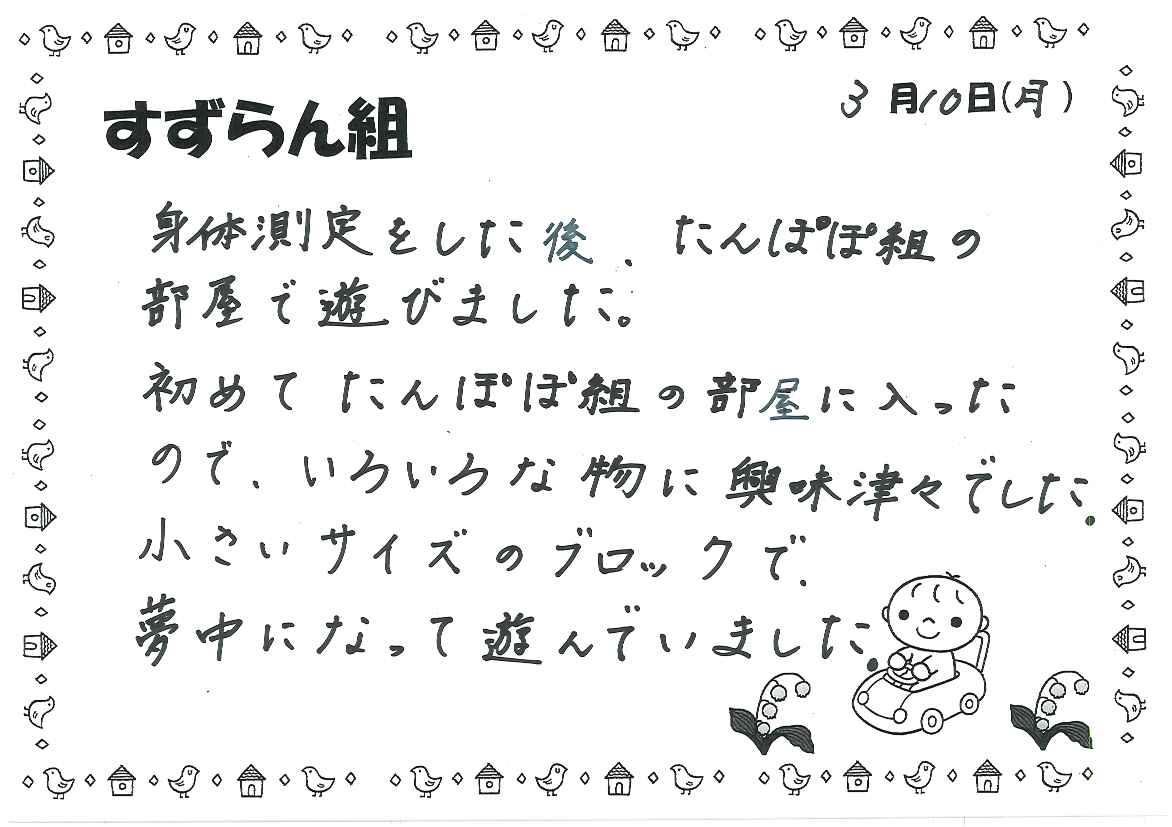 3月10日(月)
すずらん組
身体測定をした後、たんぽぽ組の
部屋で遊びました。
初めてたんぽぽ組の部屋に入った
ので、いろいろな物に興味津々でした。
小さいサイズのブロックで、
夢中になって遊んでいました。